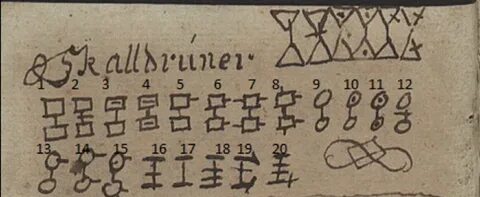 Skalldrúner
1 2 3 4 5 6 7 8 9 10 11 12
13 14 15 16 17 18 19 20